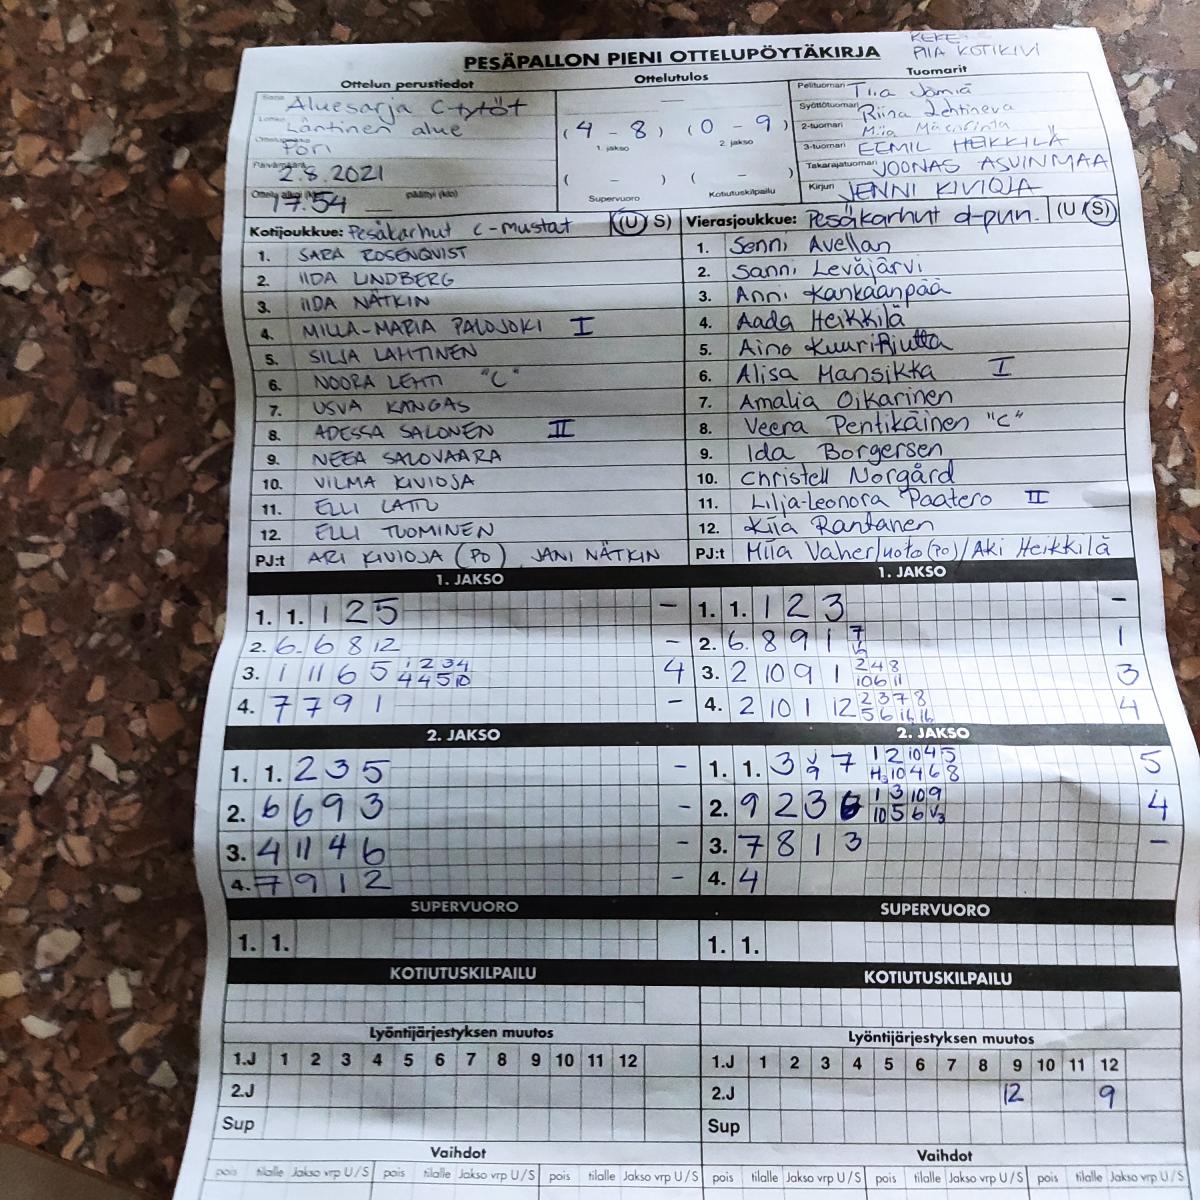 KEKE
PIIA KOTIKIVI
PESÄPALLON PIENI OTTELUPÖYTÄKIRJA
Ottelun perustiedot Ottelutulos Tuomarit
Aluesarja C-tytöt
Läntinen alue
Pori
2.8.2021
17.54 päättyi (klo)
(4 - 8) (0 - 9)
1. jakso 2. jakso
( - ) ( - )
Supervuoro Kotiutuskilpailu
Pelituomari Tiia Jämiä
Syöttötuomari Riina Lehtineva
2-tuomari Miia
3-tuomari EEMIL HEIKKILÄ
Takarajatuomari JOONAS ASUINMAA
Kirjuri JENNI KIVIOJA
Kotijoukkue: Pesäkarhut C-mustat (U S)
1. SARA ROSENQVIST
2. IIDA LINDBERG
3. IIDA NÄTKIN
4. MILLA-MARIA PALOJOKI I
5. SILJA LAHTINEN
6. NOORA LEHTI "C"
7. USVA KANGAS
8. ADESSA SALONEN II
9. NEEA SALOVAARA
10. VILMA KIVIOJA
11. ELLI LATU
12. ELLI TUOMINEN
PJ:t ARI KIVIOJA (PO) JANI NÄTKIN
Vierasjoukkue: Pesäkarhut d-pun. (U S)
1. Senni Avellan
2. Sanni Leväjärvi
3. Anni Kankaanpää
4. Aada Heikkilä
5. Aino Kuuri-Riutta
6. Alisa Mansikka I
7. Amalia Oikarinen
8. Veera Pentikäinen "C"
9. Ida Borgersen
10. Christell Norgård
11. Lilja-Leonora Paatero II
12. Kiia Rantanen
PJ:t Miia Vaherluoto (PO) / Aki Heikkilä
1. JAKSO
1. 1. 1 2 5 -
2. 6. 6 8 12 -
3. 1 11 6 5 1 2 3 4 4 4 5 10 4
4. 7 7 9 1 -
1. JAKSO
1. 1. 1 2 3 -
2. 6. 8 9 1 7 1
3. 2 10 9 1 2 4 8 10 6 11 3
4. 2 10 1 12 2 3 7 8 5 6 4
2. JAKSO
1. 1. 2 3 5 -
2. 6 6 9 3 -
3. 4 11 4 6 -
4. 7 9 1 2 -
2. JAKSO
1. 1. 3 V 9 7 1 2 10 4 5 10 4 6 8 5
2. 9 2 3 6 1 3 10 9 10 5 6 V3 4
3. 7 8 1 3 -
4. 4
SUPERVUORO SUPERVUORO
1. 1. 1. 1.
KOTIUTUSKILPAILU KOTIUTUSKILPAILU
Lyöntijärjestyksen muutos Lyöntijärjestyksen muutos
1.J 1 2 3 4 5 6 7 8 9 10 11 12 1.J 1 2 3 4 5 6 7 8 9 10 11 12
2.J 2.J 12 9
Sup Sup
Vaihdot Vaihdot
pois tilalle Jakso vrp U/S pois tilalle Jakso vrp U/S pois tilalle Jakso vrp U/S pois tilalle Jakso vrp U/S